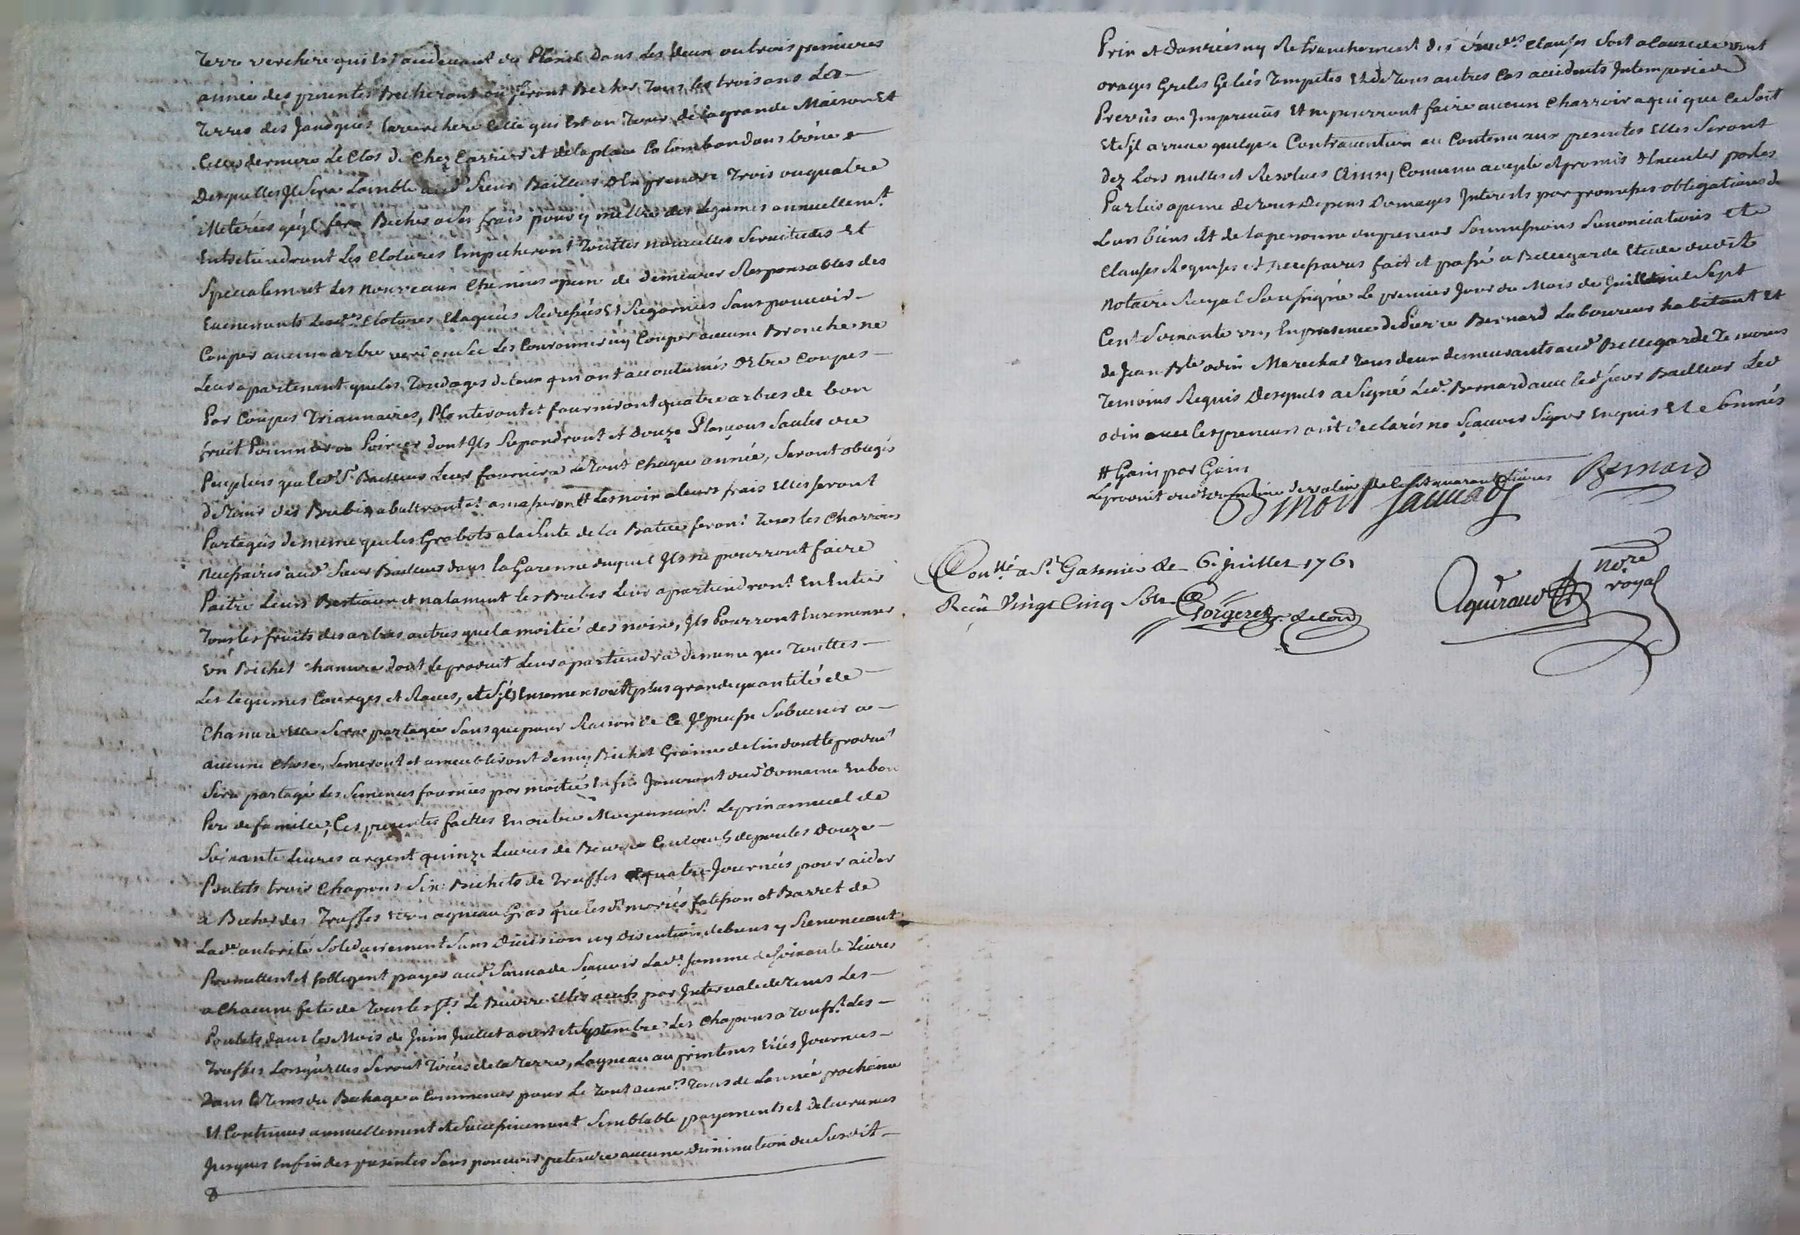 Terre verchere qui est audevant du Plenit dans les deux ou trois premieres
année des presentes Becheront ou feront Becher Tous les trois ans Les
Terres des Janiques la verchere Celle qui est au Tour de la grande Maison Et
Celle derniere Le Clos de Chez Carrier et de la place Colombar dans
Desquelles Il sera Loisible aud Sieur Bailleur d'En prendre Trois ou quatre
Meterées qu'il fera Becher a ses frais pour y mettre des Legumes annuellemt
Entretiendront Les Clotures Empecheront Touttes nouvelles Servitudes Et
Specialement des nouveaux Chemins a peine de demeurer Responsables des
Evenements Lesd. Clotures Elaguées Et Regarnies Sans pouvoir
Couper aucun arbre verd ou sec Les Couronner ny Couper aucune Branche ne
Leur apartenant que les Tondages de Ceux qui ont accoutumés d'Etre Coupés
Par Coupes Triannaires, Planteront et fourniront quatre arbres de bon
fruit Pommier ou Poirier dont Ils Repondront et douze Plançons Saules ou
Peupliers que led. Sr Bailleur Leur fournira Le Tout Chaque année, Seront obligés
abattront et amasseront Les noix a leurs frais Elles seront
Partagées de meme que les Grobots a la Suite de la Batue feront Tous les Charrois
necessaires aud Sieur Bailleur dans la Garenne duquel Ils ne pourront faire
Paitre Leurs Bestiaux et notament les Brebis Leur apartiendront En Entier
Tous les fruits des arbres autres que la moitié des noix, Ils Pourront Ensemencer
Un Bichet Chanvre dont le produit Leur apartiendra de meme que Touttes
Les Legumes Courges et Raves, et s'ils Ensemensoit plus grande quantité de
Chanvre Elle Sera partagée Sans que pour Raison de Ce Il puisse Subvenir a
aucune Chose, Semeront et ameubliront demy Bichet Graine de Lin dont le produit
Sera partagé Les Semences fournies par moitiés Enfin Jouiront dud. Domaine En bon
Pere de famille, Ces presentes faittes En outre Moyennant Le prix annuel de
Soixante Livres argent quinze Livres de Beurre Cent oeufs de poules Douze
Poulets trois Chapons Six Bichets de Truffes quatre Journées pour aider
a Becher des Truffes et un agneau Gras que lesd. mariés falesson et Barret de
Lad. autorité Solidairement Sans Division ny Discution de biens y Renonceant
Promettent et sobligent payer aud Sauvade Sçavoir Lad. somme de soixante Livres
a Chacune fete de Tous les Sts Le Beurre Et les oeufs par Intervale de Tems Les
Poulets dans les Mois de Juin Juillet aoust et Septembre Les Chapons a Touss. Les
Truffes Lorsqu'elles Seront Tirées de la Terre, Lagneau au printems Et les Journées
Dans le Tems du Bechage a Commencer pour Le Tout aux mes Tems de Lannée prochaine
Et Continuer annuellement et Successivement Semblable payements et delivrances
Jusques En fin des presentes Sans pouvoir pretendre aucune diminution du Susdit
Prix et Danrées ny Retranchement des susds Clauses Soit a Cause de vent
orages Greles Gelées Tempetes Et de Tous autres Cas accidents Intemperie de
Prevus ou Imprevus Et ne pourront faire aucun Charroir a qui que ce Soit
Et s'il arrive quelque Contravention au Contenu aux presentes Elles Seront
dez Lors nulles et Resolues Ainsy Convenu accepté et promis d'Executer par les
Parties a peine de tous Depens Domages Interests par promesses obligations de
Leurs biens Et de la personne du preneur Soumissions Renonciations Et
Clauses Requises et necessaires fait et passé a Bellegarde Etude dudit
Notaire Royal Soussigné Le premier Jour du Mois de Juillet mil Sept
Cent Soixante un, En presence de Pierre Bernard Laboureur habitant Et
de Jean Bte odin Marechal Tous deux demeurants aud Bellegarde Temoins
Temoins Requis Desquels a Signé Led. Bernard avec led. Sieur Bailleur Led
odin avec les preneurs ont declarés ne Sçavoir Signer Enquis Et
# Gain par Gain
Le produit de
Benoit Sauvade Bernard
Conllé a St Galmier Le 6. juillet 1761
Reçu Vingt Cinq Sols
Aguiraud nore royal